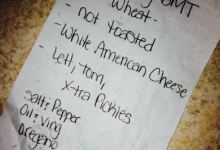 BMT
Wheat -
- not toasted
- White American Cheese
- Lett, tom,
X-tra Pickles
Salt + Pepper
Oil + Ving
Oregano